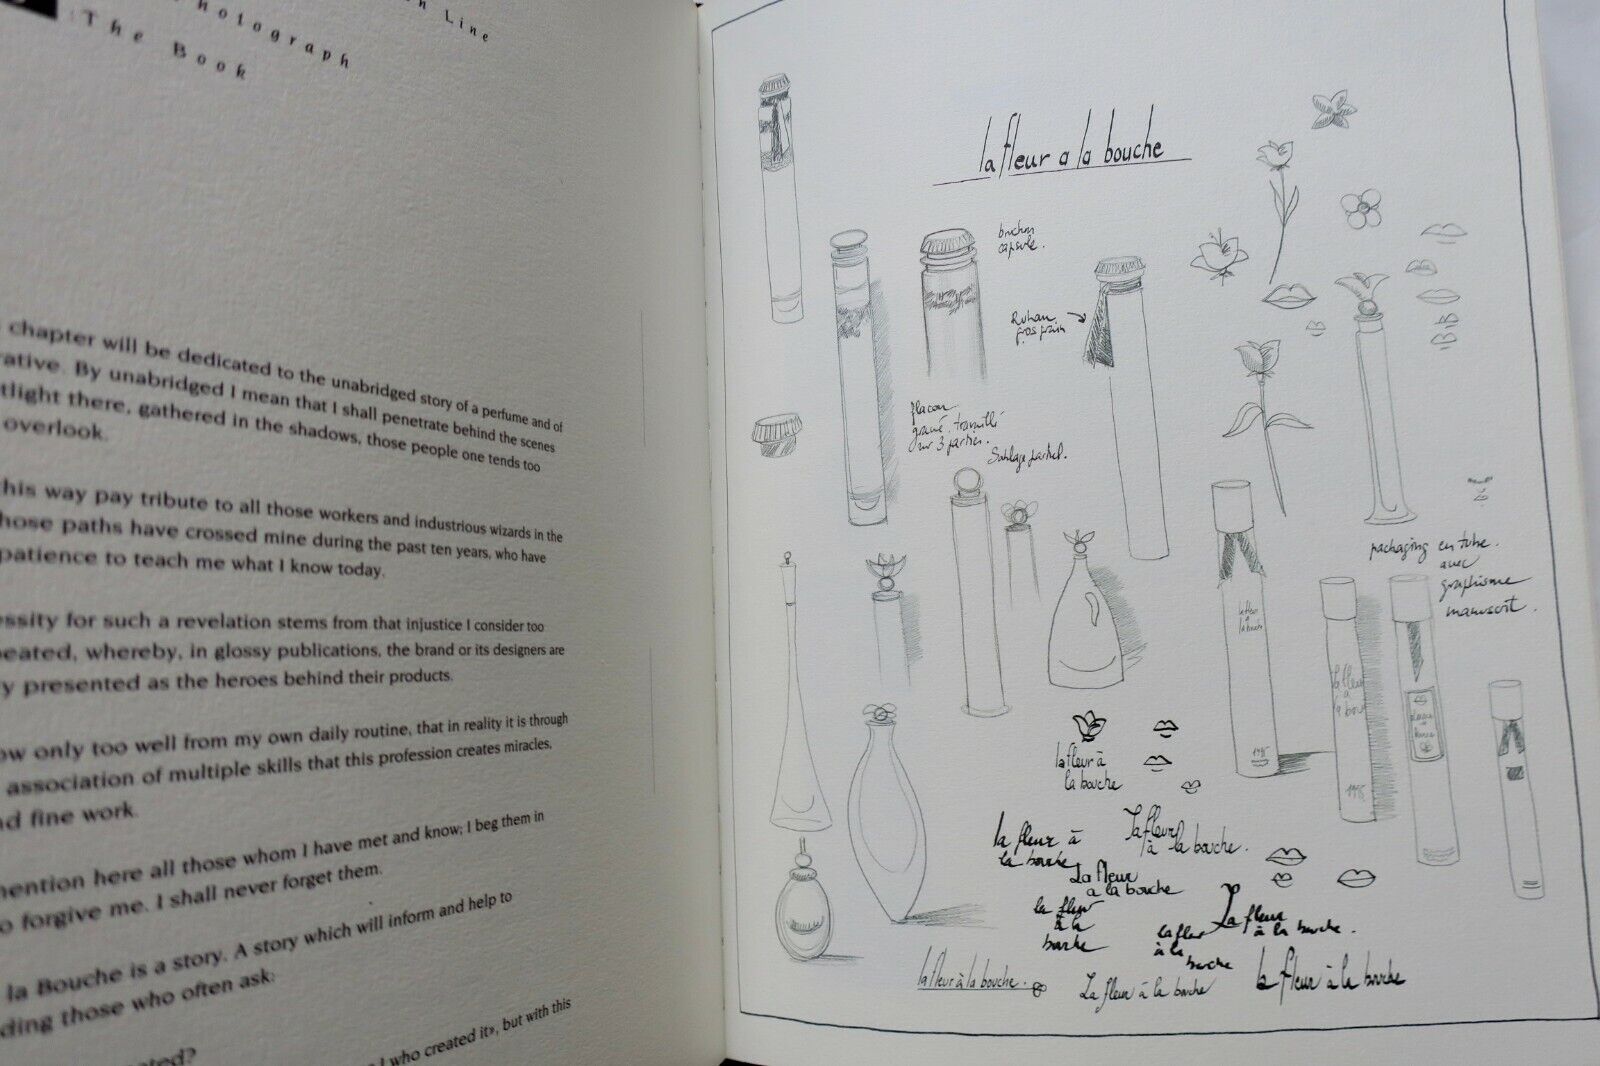 n Line
Photograph
The Book
chapter will be dedicated to the unabridged story of a perfume and of
rative. By unabridged I mean that I shall penetrate behind the scenes
tlight there, gathered in the shadows, those people one tends too
overlook.
this way pay tribute to all those workers and industrious wizards in the
hose paths have crossed mine during the past ten years, who have
patience to teach me what I know today.
essity for such a revelation stems from that injustice I consider too
eated, whereby, in glossy publications, the brand or its designers are
y presented as the heroes behind their products.
ow only too well from my own daily routine, that in reality it is through
association of multiple skills that this profession creates miracles,
nd fine work.
mention here all those whom I have met and know; I beg them in
o forgive me. I shall never forget them.
la Bouche is a story. A story which will inform and help to
ding those who often ask:
ated?
I who created it», but with this
la fleur a la bouche
bouchon
capsule.
Ruban
gros grain
flacon
gravé. travaillé
sur 3 parties.
Sablage partiel.
packaging en tube.
avec
graphisme
manuscrit.
la fleur
à
la bouche
1995
la fleur
à
la bou
1995
la fleur à
la bouche
la fleur à
la bouche
la fleur
à la bouche.
La fleur
a la bouche
la fleur
à la
bouche
la fleur
à la
bouche
La fleur
à la bouche.
la fleur à la bouche.
La fleur à la bouche
la fleur à la bouche